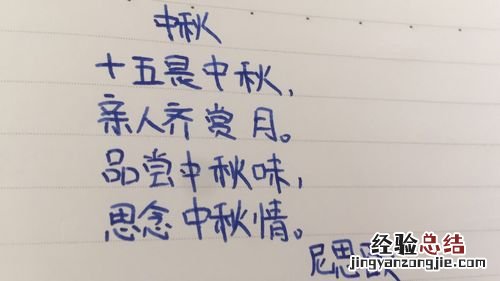 中秋
十五是中秋，
亲人齐赏月。
品尝中秋味，
思念中秋情。
尼思
经验总结
jingyanzongjie.com